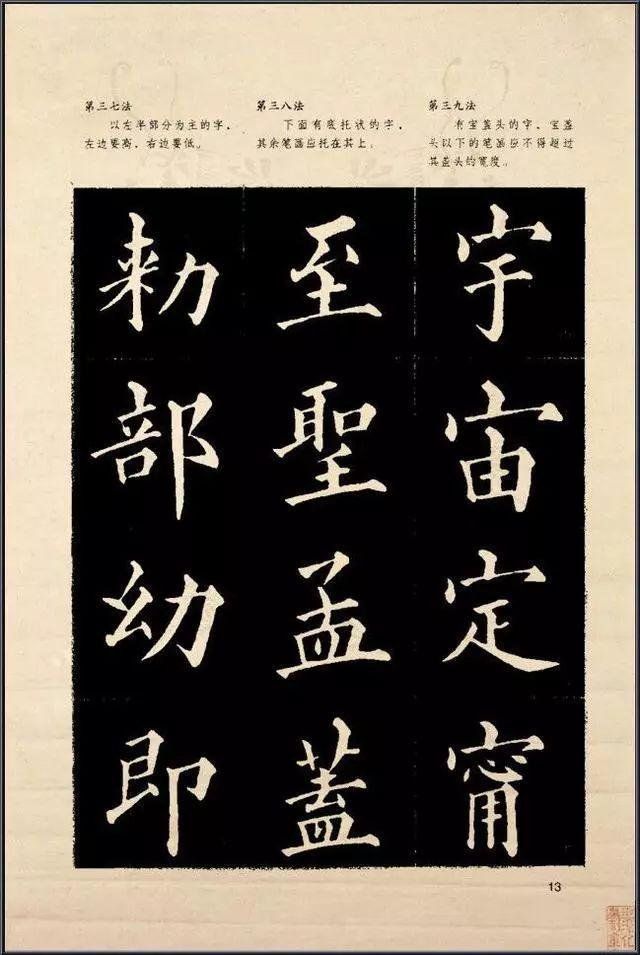 第三七法
以左半部分为主的字,
左边要高,右边要低。
第三八法
下面有底托状的字,
其余笔画应托在其上。
第三九法
有宝盖头的字,宝盖
头以下的笔画应不得超过
其盖头的宽度。
勑
部
幼
即
至
聖
孟
蓋
宇
宙
定
甯
13